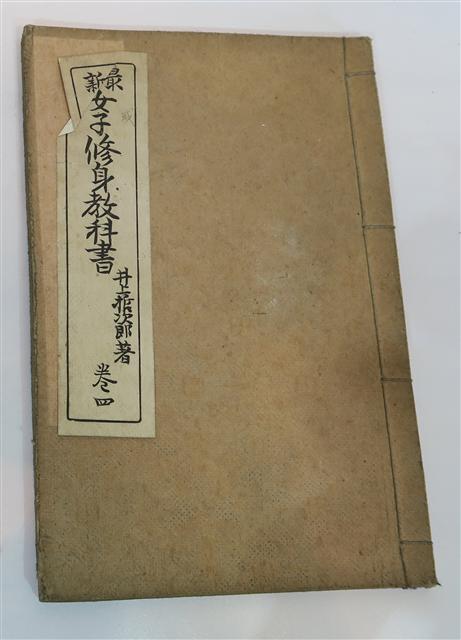 最新女子修身教科書
井上哲次郎著
巻四